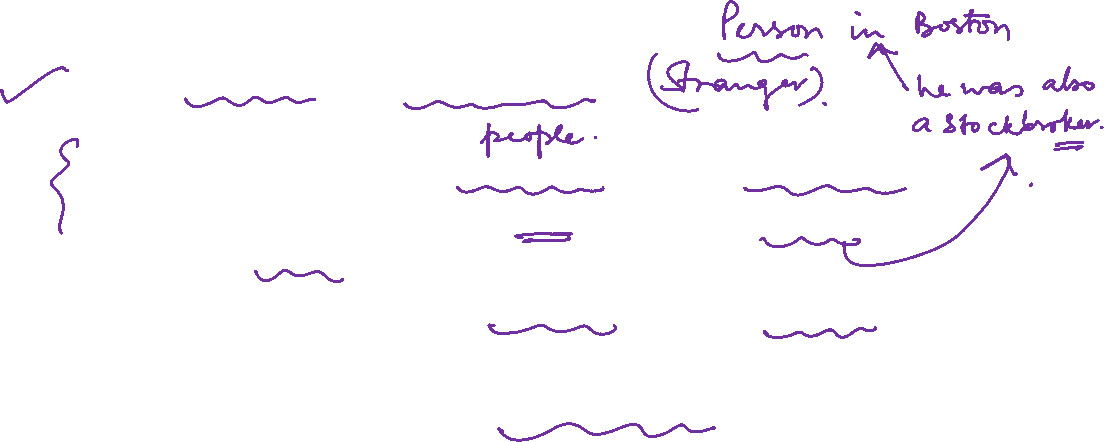 Person in Boston
(Stranger).
he was also
a stockbroker.
people.